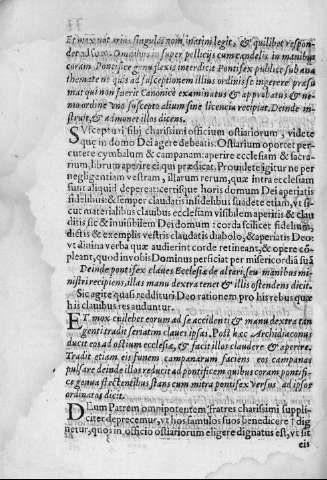 Et mox notarius singulos nominatim legit, & quilibet respon-
det adsum. Omnibus in super pelliciis cum candelis in manibus
coram Pontifice genu flexis interdicit Pontifex publice sub ana
themate ut quis ad susceptionem illius ordinis se ingerere præsu
mat qui non fuerit Canonice examinatus & approbatus & ne
mo ordine uno suscepto alium sine licentia recipiat. Deinde in-
struit, & admonet illos dicens.
SVscepturi filij charissimi officium ostiariorum, videte
quę in domo Dei agere debeatis. Ostiarium oportet per-
cutere cymbalum & campanam: aperire ecclesiam & sacra-
rium, librum aperire ei qui prædicat. Prouidete igitur ne per
negligentiam vestram, illarum rerum, quæ intra ecclesiam
sunt aliquid depereat: certisque horis domum Dei aperiatis
fidelibus: & semper claudatis infidelibus suadete etiam, vt si-
cut materialibus clauibus ecclesiam visibilem aperitis & clau
ditis sic & inuisibilem Dei domum: corda scilicet fidelium,
dictis & exemplis vestris claudatis diabolo, & aperiatis Deo:
vt diuina verba quæ audierint corde retineant, & opere cō-
pleant, quod in vobis Dominus perficiat per misericordiā suā
Deinde pontifex claues Ecclesiæ de altari, seu manibus mi-
nistri recipiens, illas manu dextra tenet & illis ostendens dicit.
Sic agite quasi reddituri Deo rationem pro his rebus quæ
his clauibus resauduntur.
ET mox cuilibet eorum ad se accidenti & manu dextra tan
genti tradit seriatim claues ipsas. Post hæc Archidiaconus
ducit eos ad ostium ecclesiæ, & facit illos claudere & aperire.
Tradit etiam eis funem campanarum faciens eos campanas
pulsare deinde illos reducit ad pontificem quibus coram pontifi-
ce genua flectentibus stans cum mitra pontifex versus ad ipsos
ordinatos dicit.
DEum Patrem omnipotentem fratres charissimi suppli-
citer deprecemur, vt hos famulos suos benedicere dig
netur, quos in officio ostiariorum eligere dignatus est, vt sit
eis